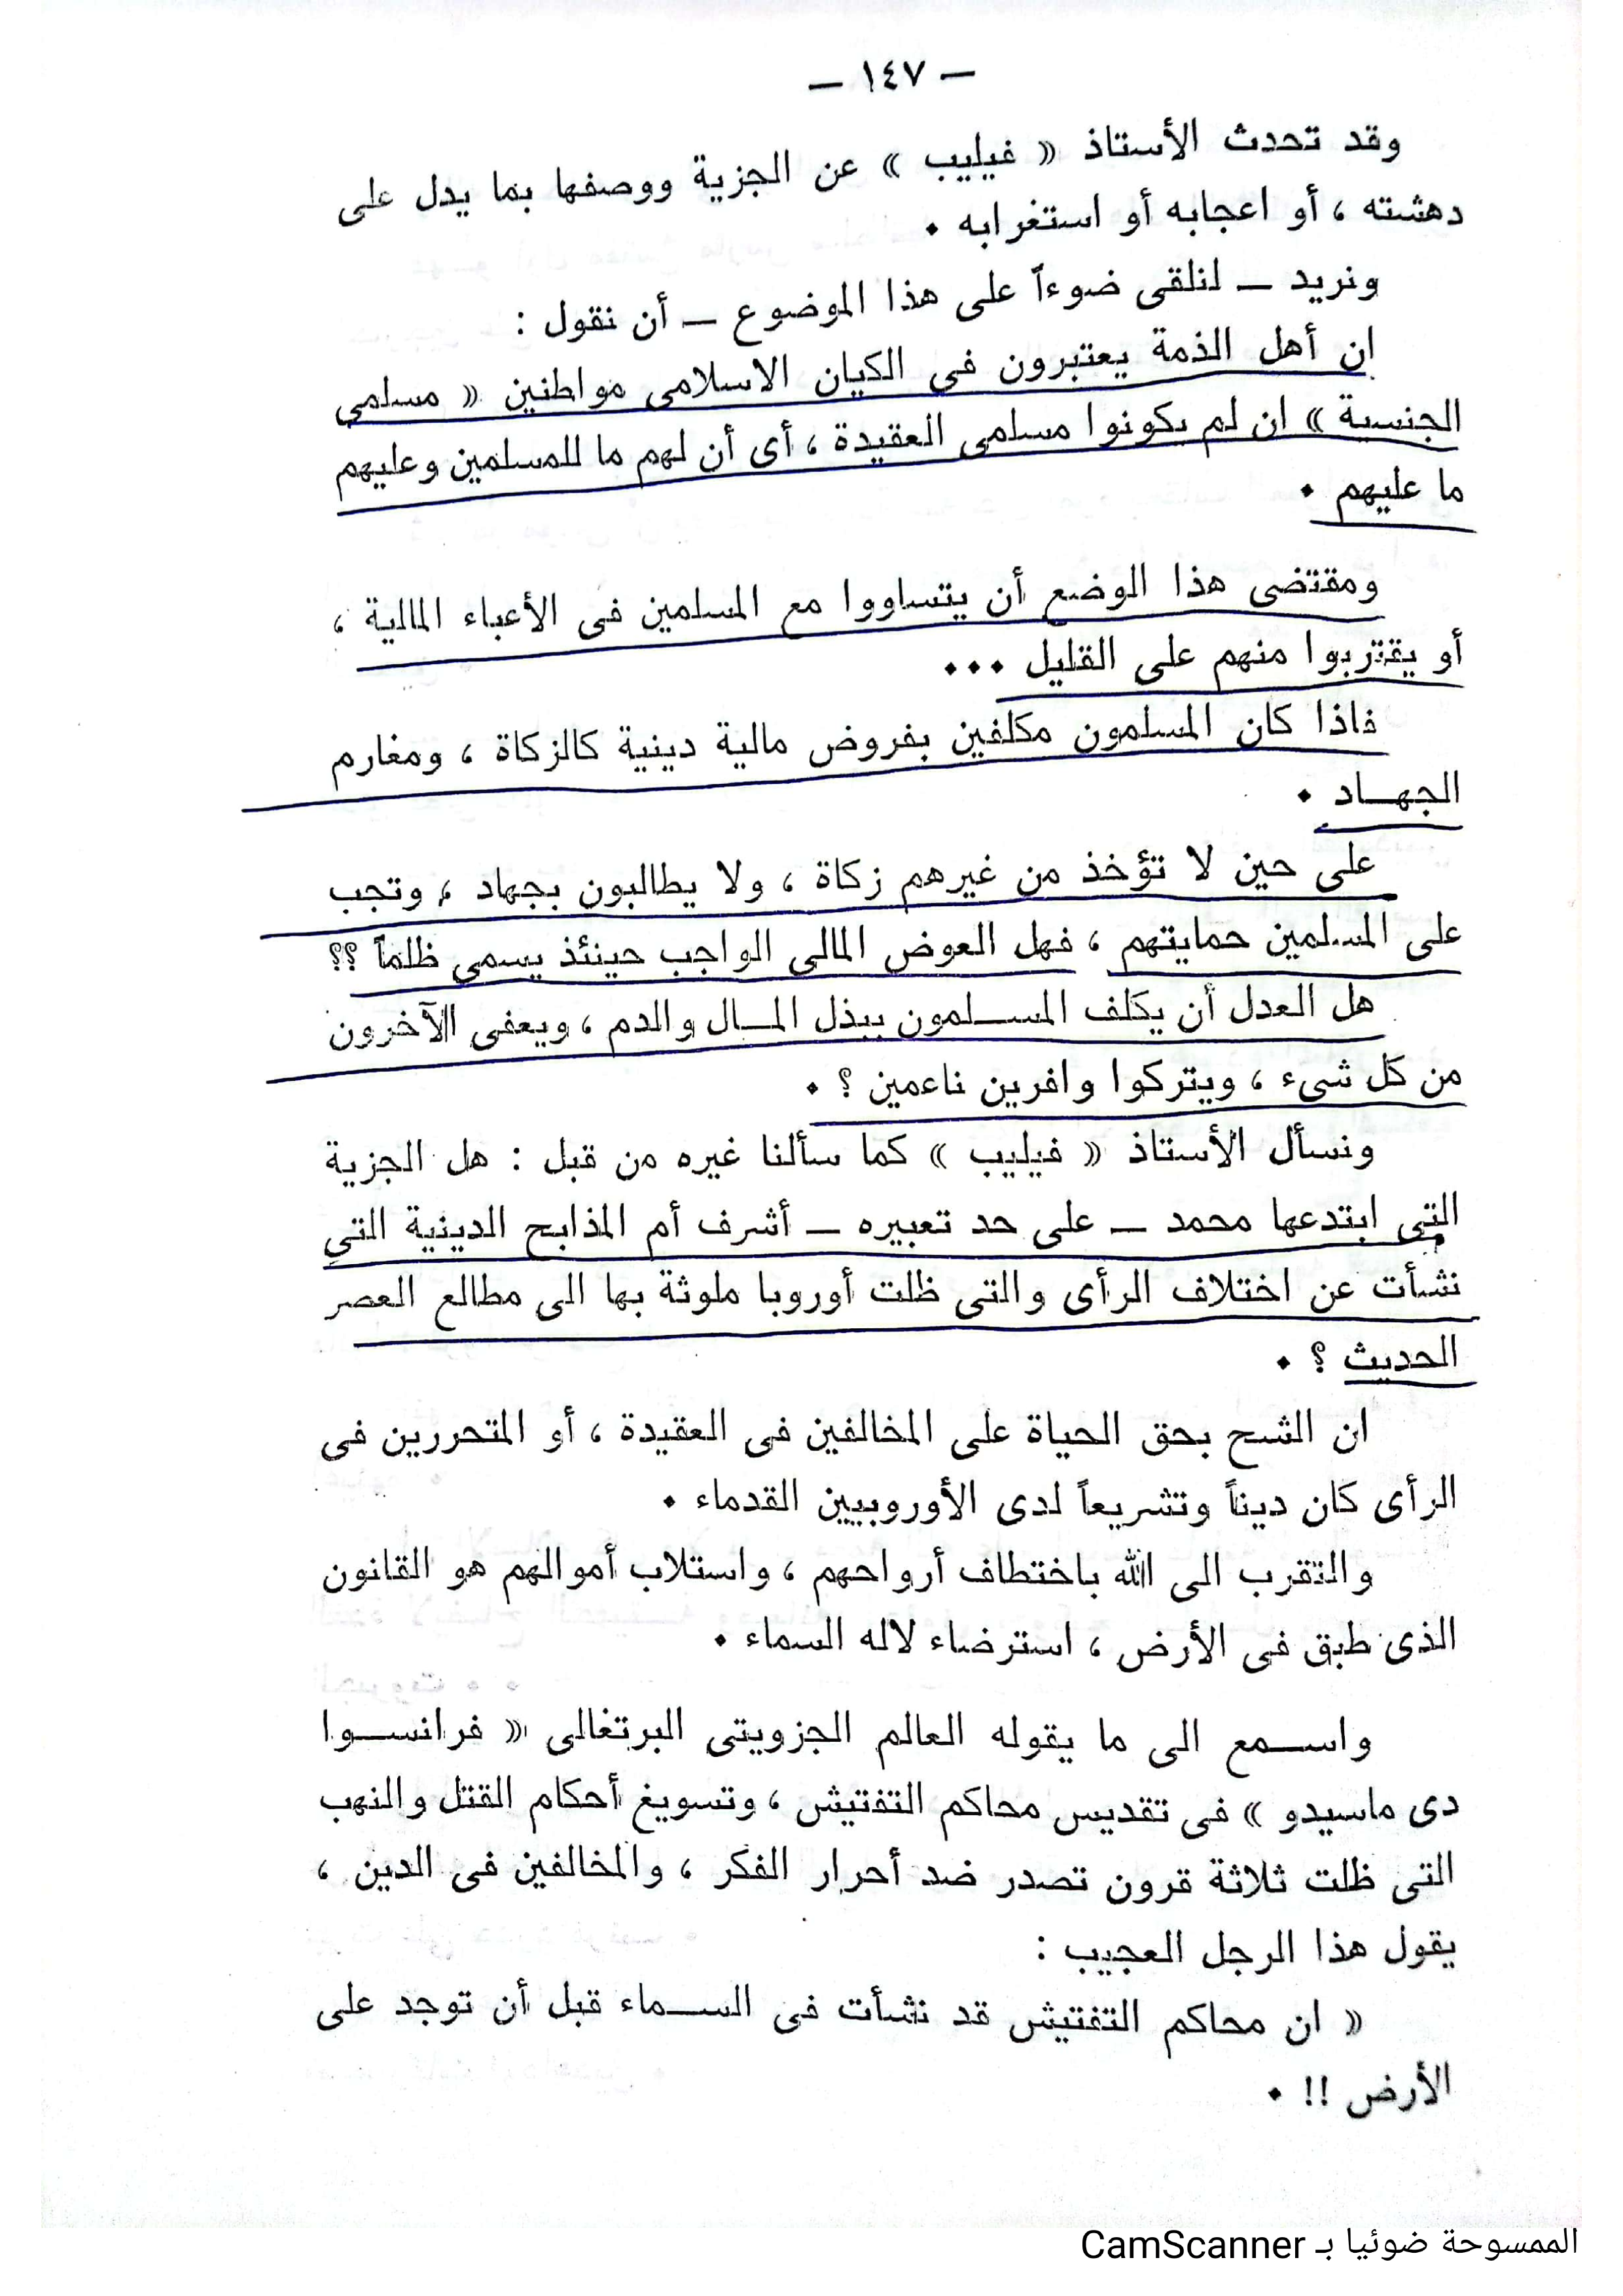 — ١٤٧ —
وقد تحدث الأستاذ « فيليب » عن الجزية ووصفها بما يدل على
دهشته ، أو اعجابه أو استغرابه .
ونريد — لنلقى ضوءاً على هذا الموضوع — أن نقول :
ان أهل الذمة يعتبرون فى الكيان الاسلامى مواطنين « مسلمى
الجنسية » ان لم يكونوا مسلمى العقيدة ، أى أن لهم ما للمسلمين وعليهم
ما عليهم .
ومقتضى هذا الوضع أن يتساووا مع المسلمين فى الأعباء المالية ،
أو يقتربوا منهم على القليل ...
فاذا كان المسلمون مكلفين بفروض مالية دينية كالزكاة ، ومغارم
الجهـاد .
على حين لا تؤخذ من غيرهم زكاة ، ولا يطالبون بجهاد ، وتجب
على المسلمين حمايتهم ، فهل العوض المالى الواجب حينئذ يسمى ظلماً ؟؟
هل العدل أن يكلف المسـلمون ببذل المـال والدم ، ويعفى الآخرون
من كل شىء ، ويتركوا وافرين ناعمين ؟ .
ونسأل الأستاذ « فيليب » كما سألنا غيره من قبل : هل الجزية
التى ابتدعها محمد — على حد تعبيره — أشرف أم المذابح الدينية التى
نشأت عن اختلاف الرأى والتى ظلت أوروبا ملوثة بها الى مطالع العصر
الحديث ؟ .
ان الشح بحق الحياة على المخالفين فى العقيدة ، أو المتحررين فى
الرأى كان ديناً وتشريعاً لدى الأوروبيين القدماء .
والتقرب الى الله باختطاف أرواحهم ، واستلاب أموالهم هو القانون
الذى طبق فى الأرض ، استرضاء لاله السماء .
واسـمع الى ما يقوله العالم الجزويتى البرتغالى « فرانسـوا
دى ماسيدو » فى تقديس محاكم التفتيش ، وتسويغ أحكام القتل والنهب
التى ظلت ثلاثة قرون تصدر ضد أحرار الفكر ، والمخالفين فى الدين ،
يقول هذا الرجل العجيب :
« ان محاكم التفتيش قد نشأت فى السـماء قبل أن توجد على
الأرض !! .
الممسوحة ضوئيا بـ CamScanner